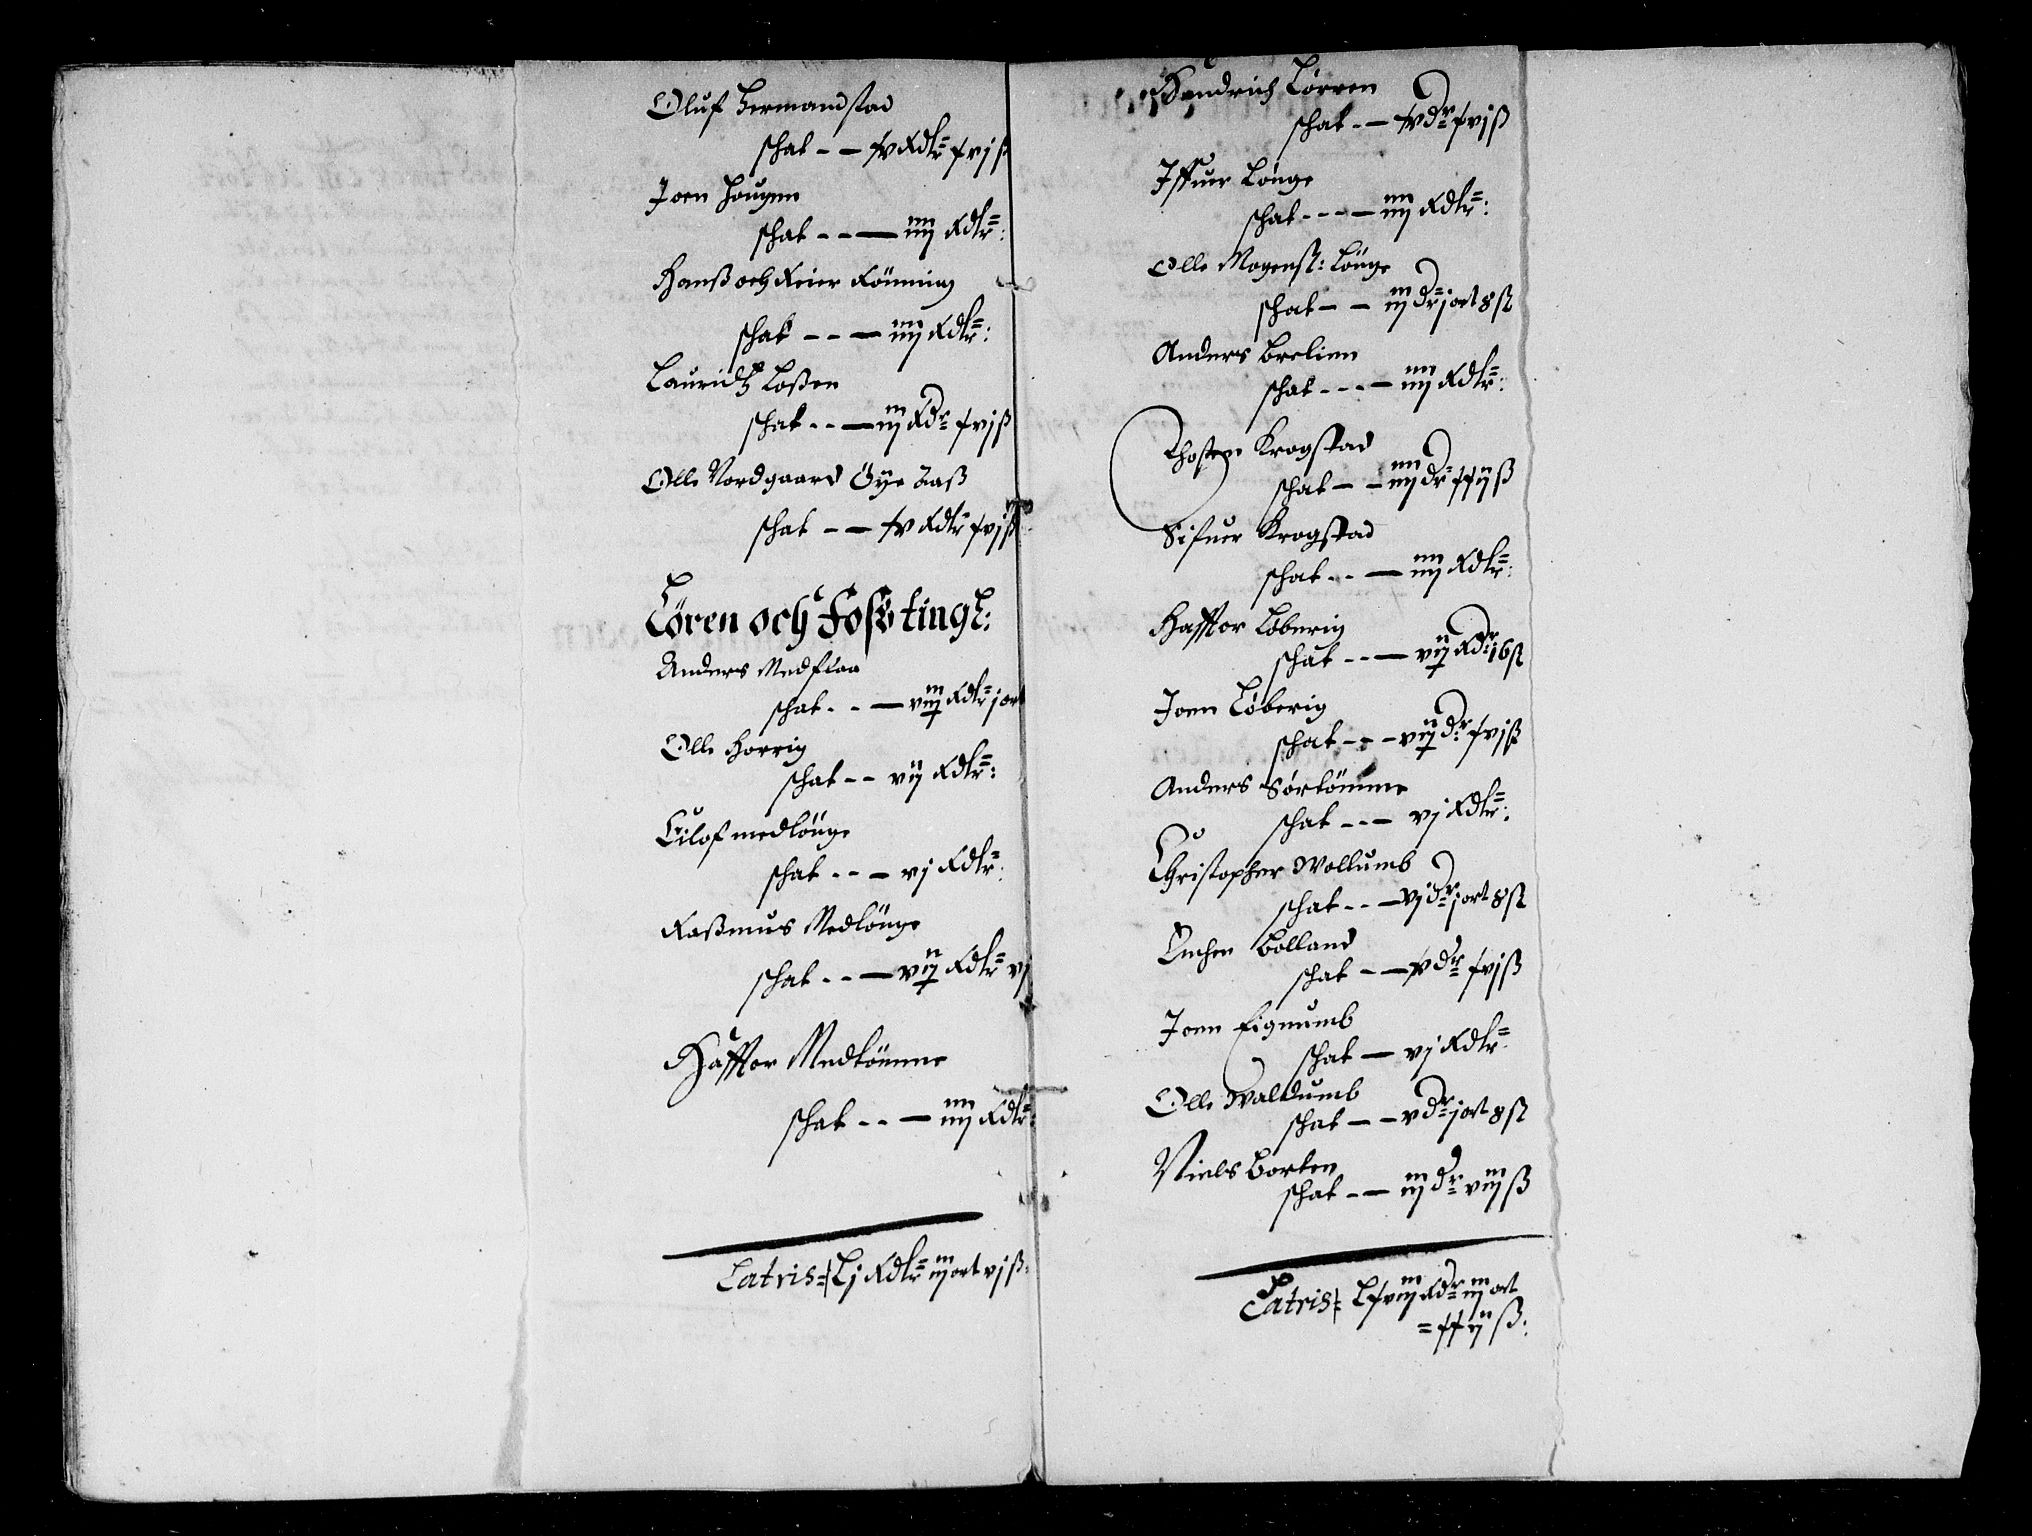 Oluf Hermandstad
schat - - xv Rdlr xvj ß
Joen Hougen
schat - - - iiij Rdlr:
Hanß och Reier Rönning
schat - - - iiij Rdlr:
Lauridtz Loßen
schat - - - iij Rdr xvj ß
Olle Nordgaard Öye
schat - - xv Rdlr xvj ß
Lören och Foss tingl:
Anders Medflaa
schat - - - viij Rdlr j ort
Olle Horrig
schat - - vij Rdlr:
Eilof medlöuge
schat - - - vj Rdlr:
Raßmus Medlöuge
schat - - - vij Rdlr vj
Haffor Medtömme
schat - - - iiij Rdlr:
Latris Lj Rdlr iij ort vj ß:
Hendrich Lörren
schat - - xv dr xvj ß
Iffuer Löuge
schat - - - - iiij Rdlr:
Olle Mogenß: Löuge
schat - - iij dr j ort 8 ß
Anders Brelien
schat - - - - iiij Rdlr:
Thosten Krogstad
schat - - iiij dr xxij ß
Sifuer Krogstad
schat - - - iiij Rdlr:
Haffor Löberig
schat - - - vij Rdr 16 ß
Joen Löberig
schat - - - vij dr xvj ß
Anders Sørtömme
schat - - - vj Rdlr:
Christopher Wollumb
schat - - - vj dr j ort 8 ß
Bolland
schat - - v dr xvj ß
Joen Eignumb
schat - vj Rdlr
Olle Walldumb
schat - - v dr j ort 8 ß
Niels Borten
schat - - iij dr viij ß
Latris Lxviij Rdr iij ort
= xxij ß: